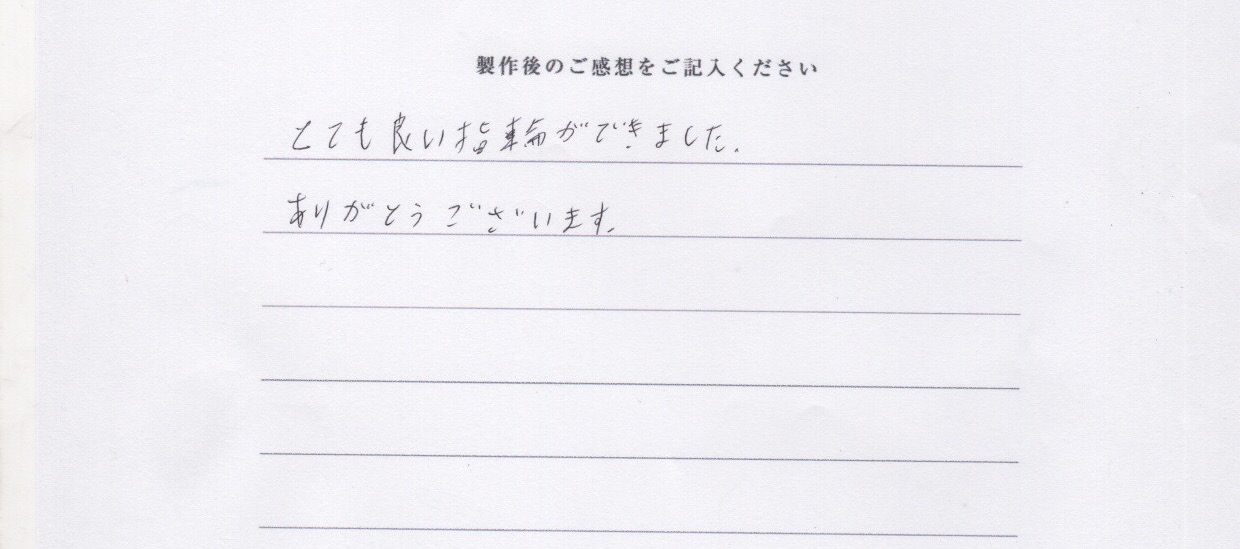 製作後のご感想をご記入ください
とても良い指輪ができました.
ありがとうございます.